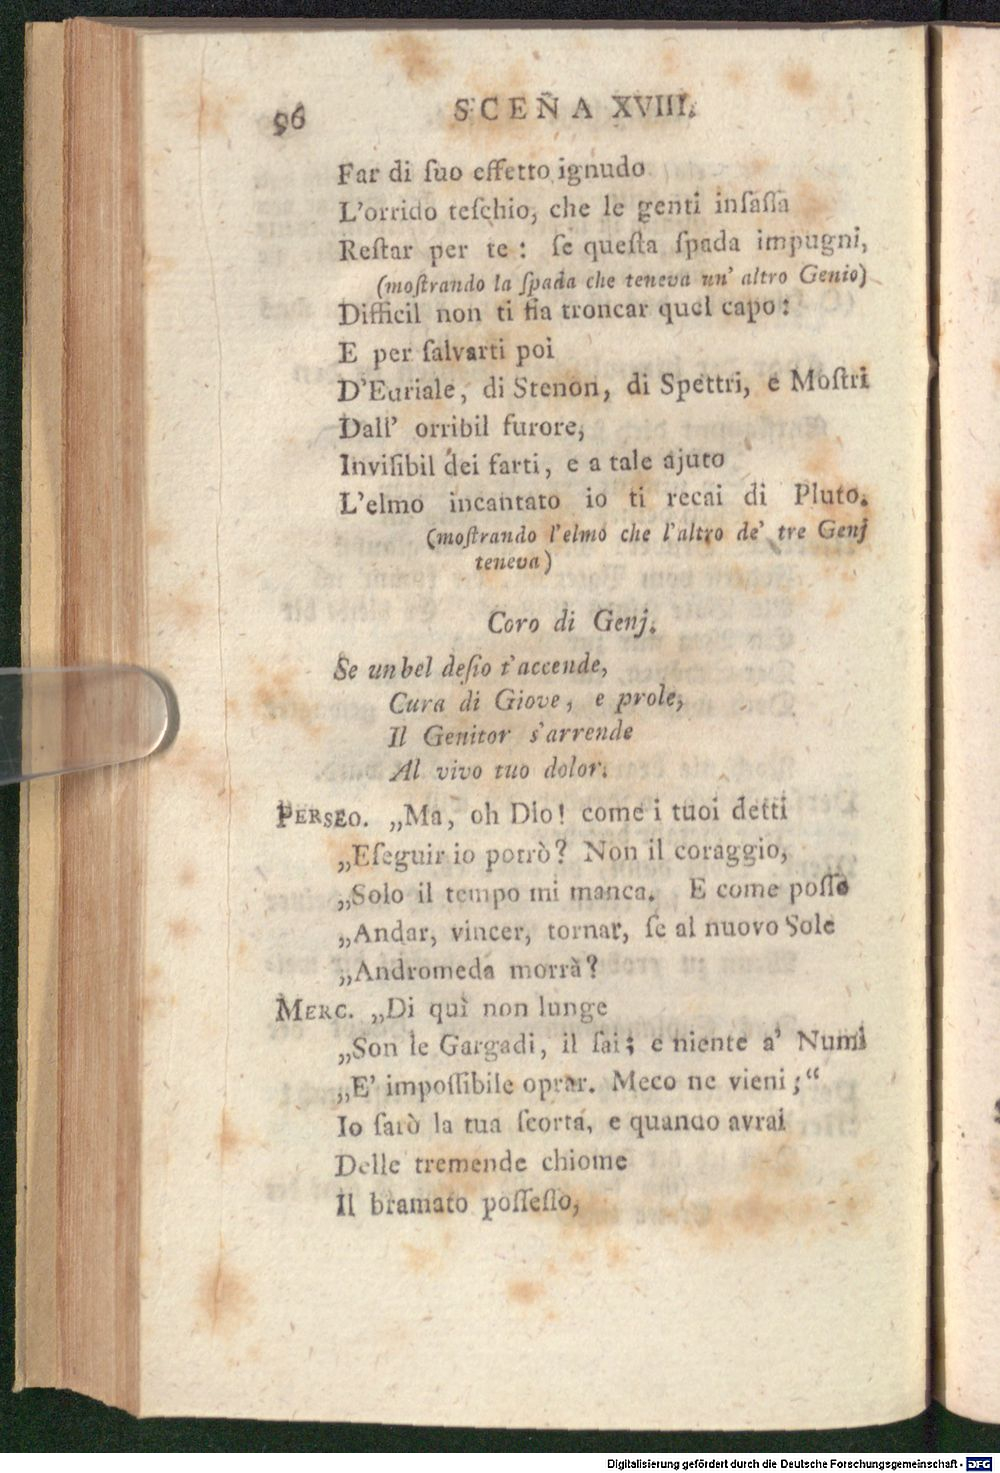 96 SCENA XVIII.
Far di ſuo effetto ignudo
L'orrido teſchio, che le genti inſaſſa
Reſtar per te: ſe queſta ſpada impugni,
(moſtrando la ſpada che teneva un' altro Genio)
Difficil non ti fia troncar quel capo:
E per ſalvarti poi
D'Euriale, di Stenon, di Spettri, e Moſtri
Dall' orribil furore,
Inviſibil dei farti, e a tale ajuto
L'elmo incantato io ti recai di Pluto.
(moſtrando l'elmo che l'altro de' tre Genj
teneva)
Coro di Genj.
Se un bel deſio t'accende,
Cura di Giove, e prole,
Il Genitor s'arrende
Al vivo tuo dolor.
PERSEO. „Ma, oh Dio! come i tuoi detti
„Eſeguir io potrò? Non il coraggio,
„Solo il tempo mi manca. E come poſſo
„Andar, vincer, tornar, ſe al nuovo Sole
„Andromeda morrà?
MERC. „Di quì non lunge
„Son le Gargadi, il ſai; e niente a' Numi
„E' impoſſibile oprar. Meco ne vieni;“
Io ſarò la tua ſcorta, e quando avrai
Delle tremende chiome
Il bramato poſſeſſo,
Digitalisierung gefördert durch die Deutsche Forschungsgemeinschaft - DFG